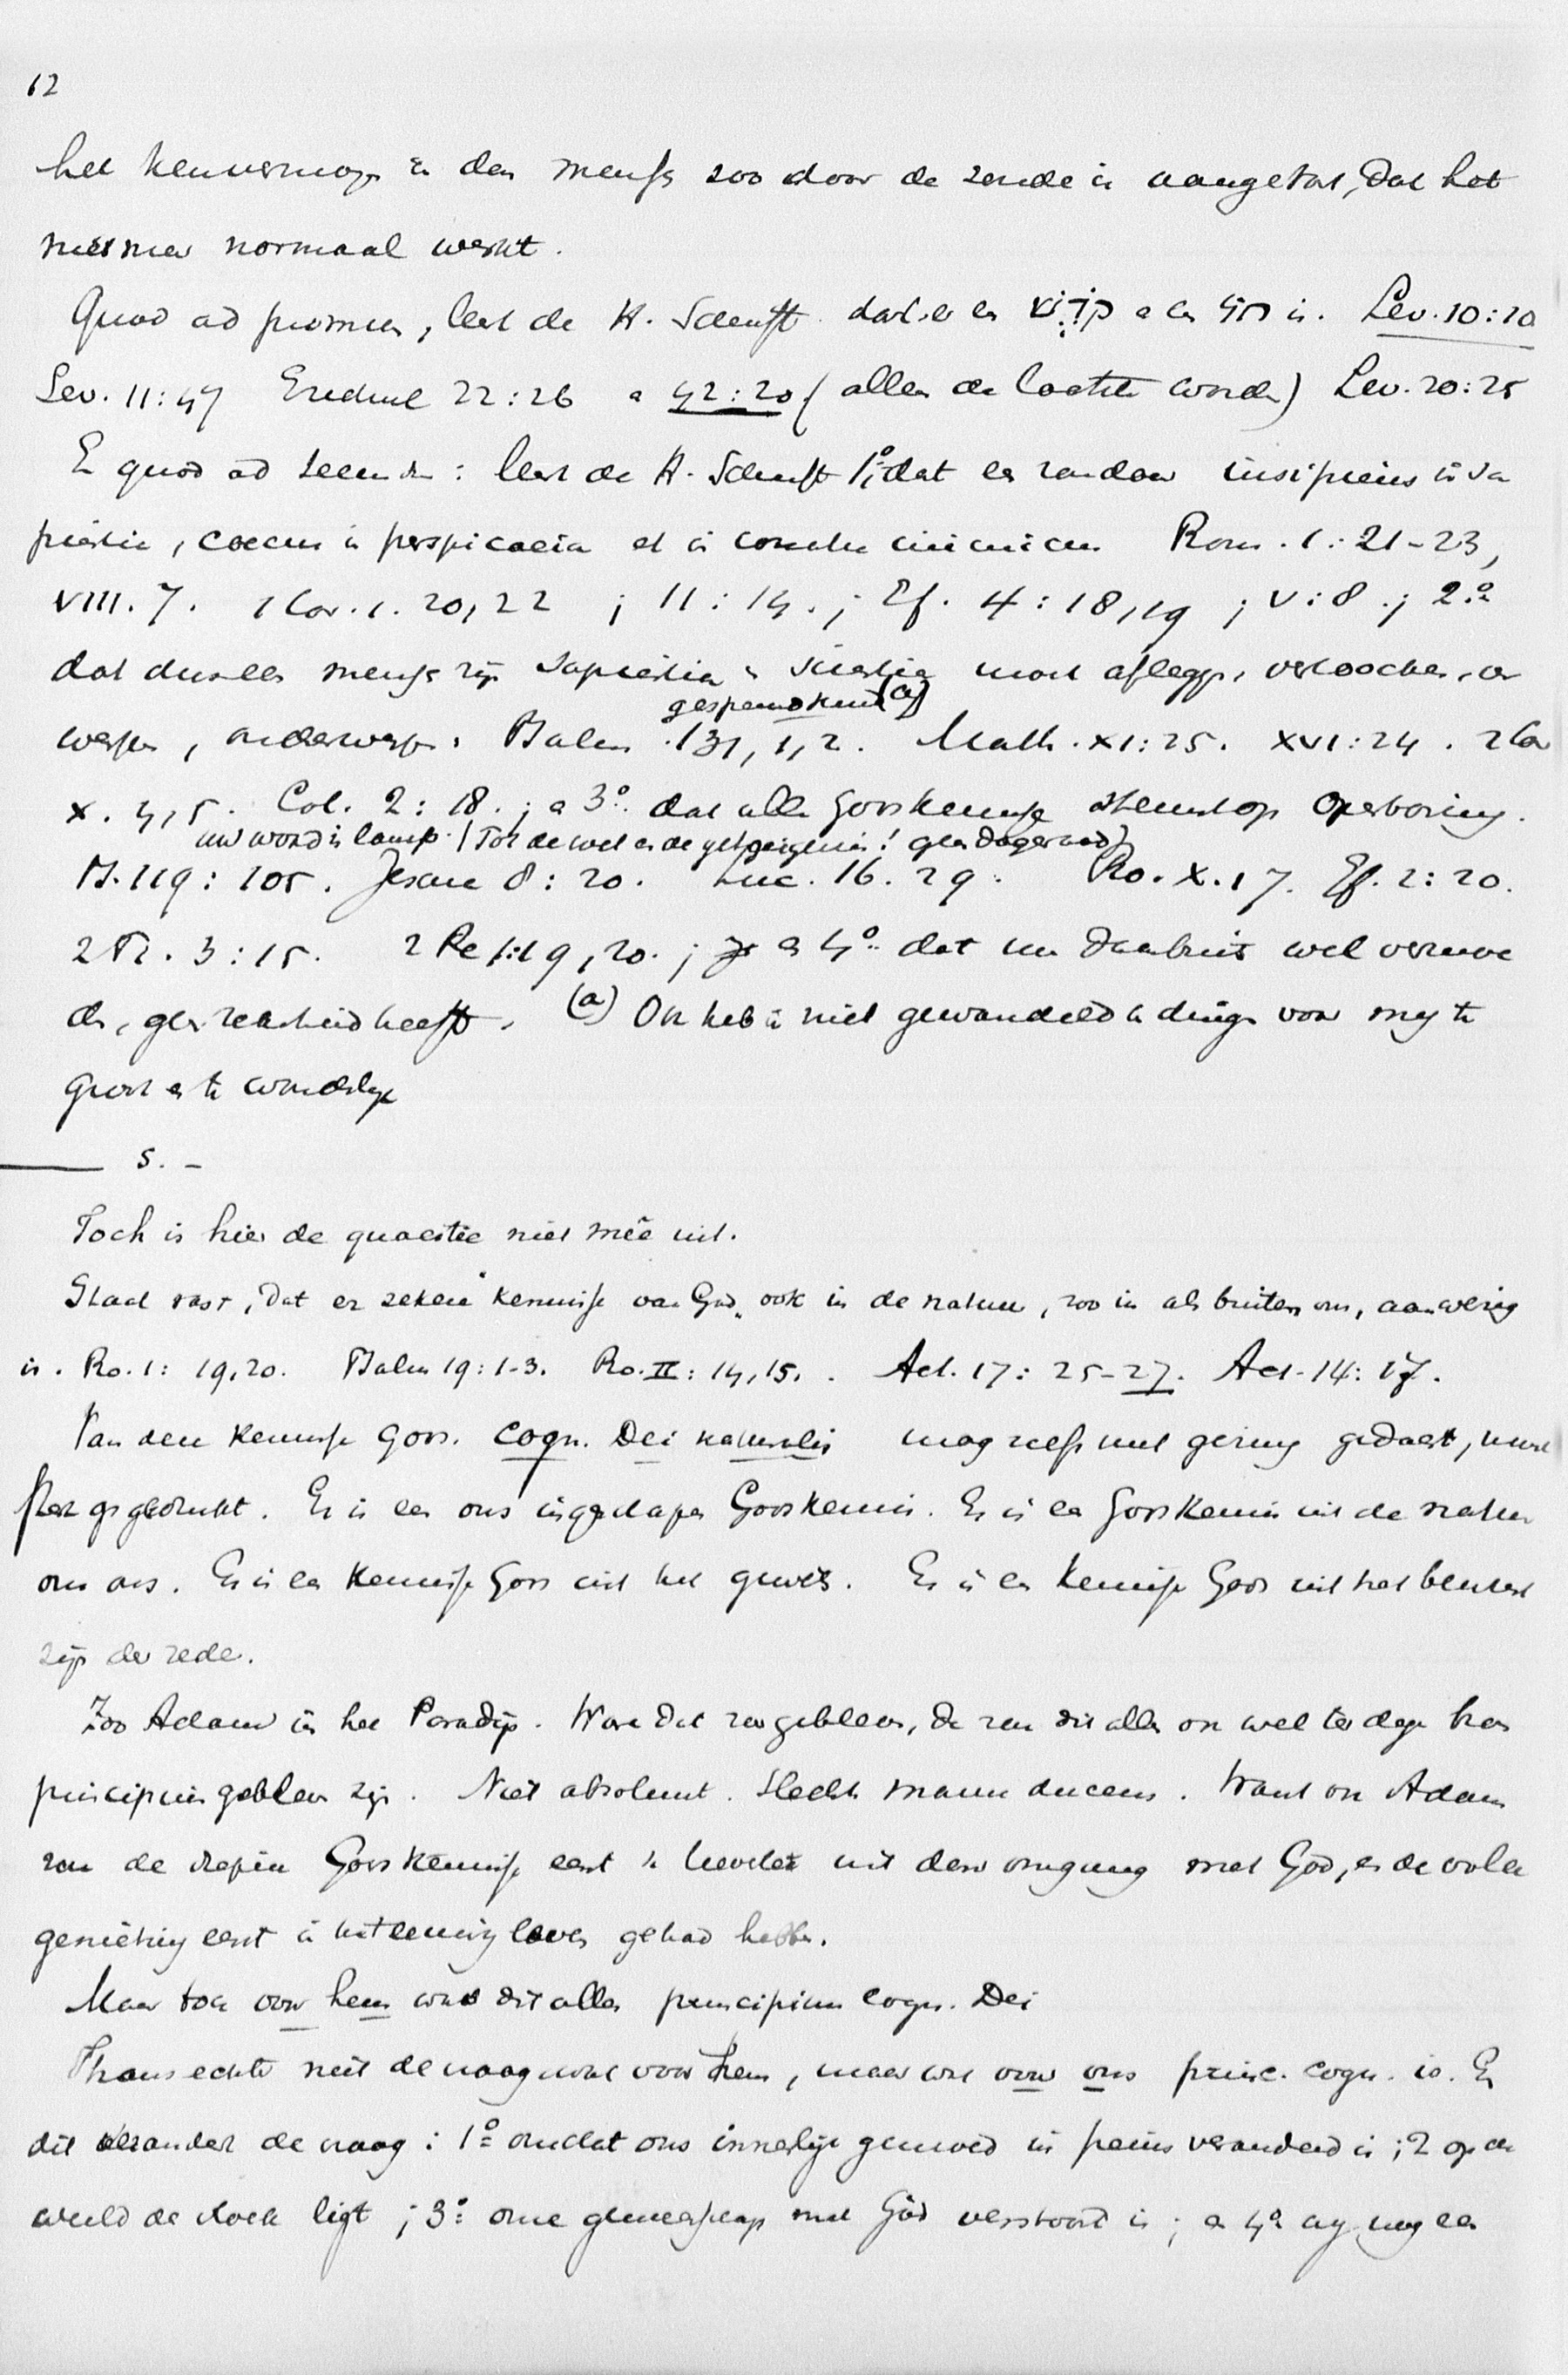 12
het kenvermogen in den mensch zoo door de zonde is aangetast, dat het
niet meer normaal werkt.
Quod ad primum, leert de H. Schrift dat er een קֹדֶשׁ en een חֹל is. Lev. 10:10
Lev. 11:47 Ezechiel 22:26 en 42:20 (alleen de laatste woorden) Lev. 20:25
En quod ad secundum: leert de H. Schrift 1º dat een zondaar insipiens in sa
pientia, coecus in perspicacia et in consilio inimicus Rom. 1:21-23,
VIII. 7. 1 Cor. 1. 20, 22 ; 11:14. ; Ef. 4:18,19 ; V:8. ; 2º
dat dus een mensch zijn sapientia en scientia moet afleggen, verloochenen, ver
gespeend kind (a)
werpen, onderwerpen. Psalm 131, 1, 2. Matth. XI:25. XVI:24. 2 Cor
X. 4,5. Col. 2:18. ; en 3º dat alle Godskennisse steunt op openbaring.
uw woord is lamp. / Tot de wet en de getuigenis! geen dageraad)
Ps. 119:105. Jesaia 8:20. Luc. 16. 29. Ro. X. 17. Ef. 2:20.
2 Ti. 3:15. 2 Pe 1:19, 20. ; en 4º dat men daarbuiten wel vermoe
den, geen zekerheid heeft. (a) Ook heb ik niet gewandeld in dingen voor mij te
groot en te wonderlijk
5. -
Toch is hier de quaestie niet meê uit.
Staat vast, dat er zekere kennisse van God, ook in de natuur, zoo in als buiten ons, aanwezig
is. Ro. 1:19,20. Psalm 19:1-3. Ro. II:14,15. Act. 17:25-27. Act. 14:17.
Van deze kennisse Gods. Cogn. Dei naturalis mag zelfs niet gering gedacht, moet
sterk gedrukt. Er is een ons ingeschapen Godskennis. Er is een Godskennis uit de natuur
om ons. Er is een kennisse Gods uit het geweten. Er is een kennisse Gods uit het bewust
zijn der rede.
Zoo Adam in het Paradijs. Ware dat zoo gebleven, dan zou dit alles ook wel ter dege het
principium gebleven zijn. Niet absoluut. Slechts manu ducens. Want ook Adam
zou de diepere Godskennisse eerst in heerlet uit den omgang met God, en de volle
genieting eerst in het eeuwig leven gehad hebben.
Maar toch voor hem was dit alles principium cogn. Dei
Thans echter is niet de vraag wat voor hem, maar wat voor ons princ. cogn. is. En
dit verandert de vraag: 1º omdat ons innerlijk gemoed in peius veranderd is ; 2 op de
wereld de vloek ligt ; 3º onze gemeenschap met God verstoord is ; en 4º wij nog een